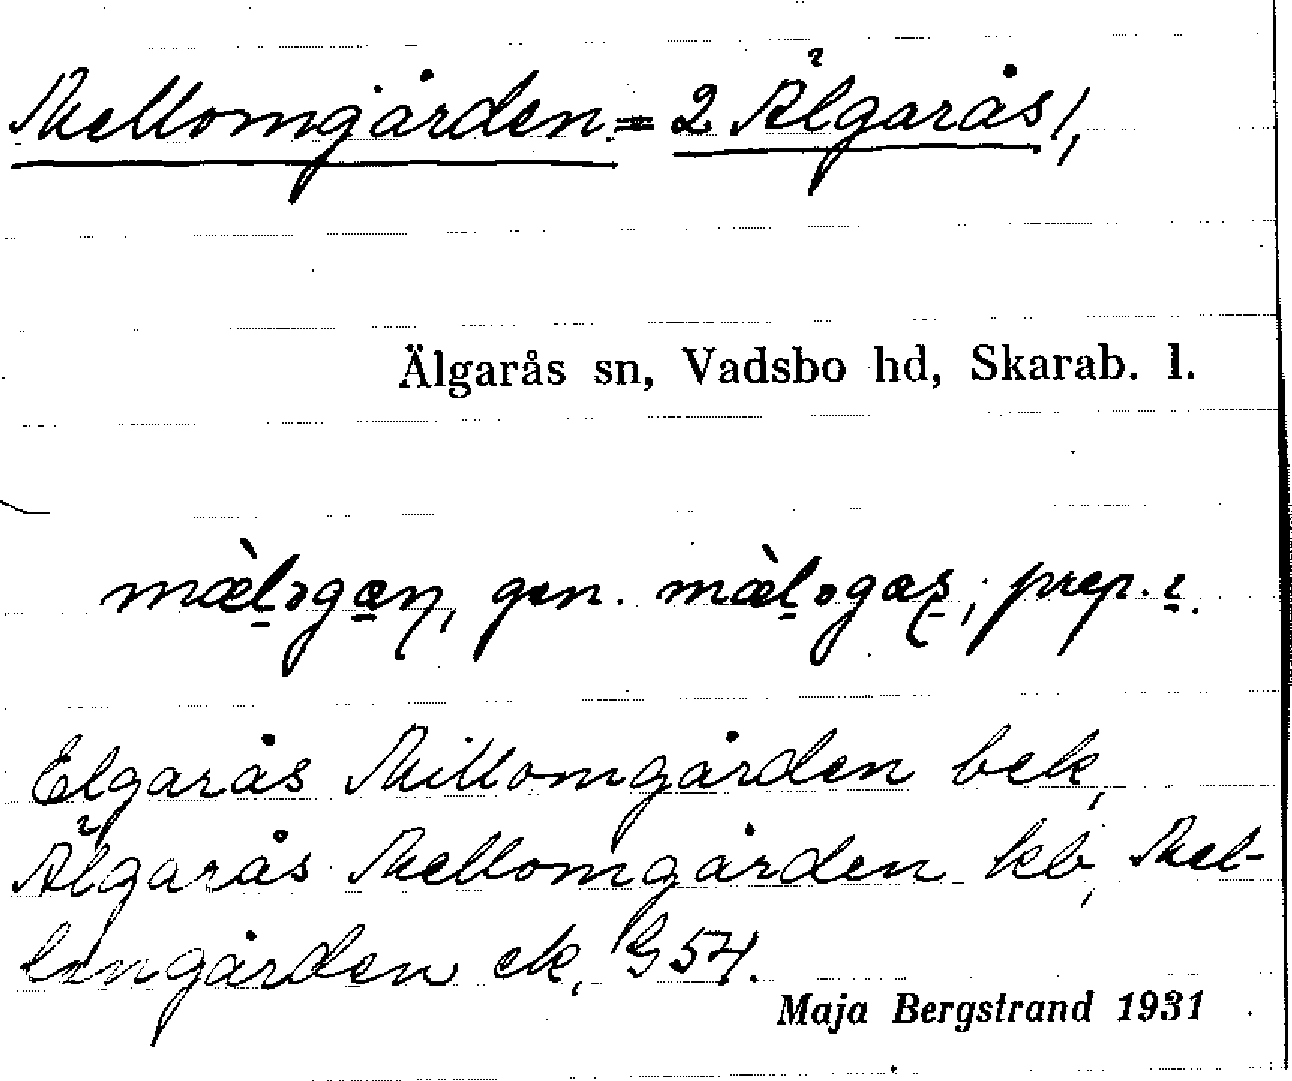 Mellomgården = 2 Älgarås 1,
Älgarås sn, Vadsbo hd, Skarab. l.
gen. prep. i.
Elgarås Millomgården bek,
Älgarås Mellomgården kb, Mel-
lomgården ek, G 54.
Maja Bergstrand 1931